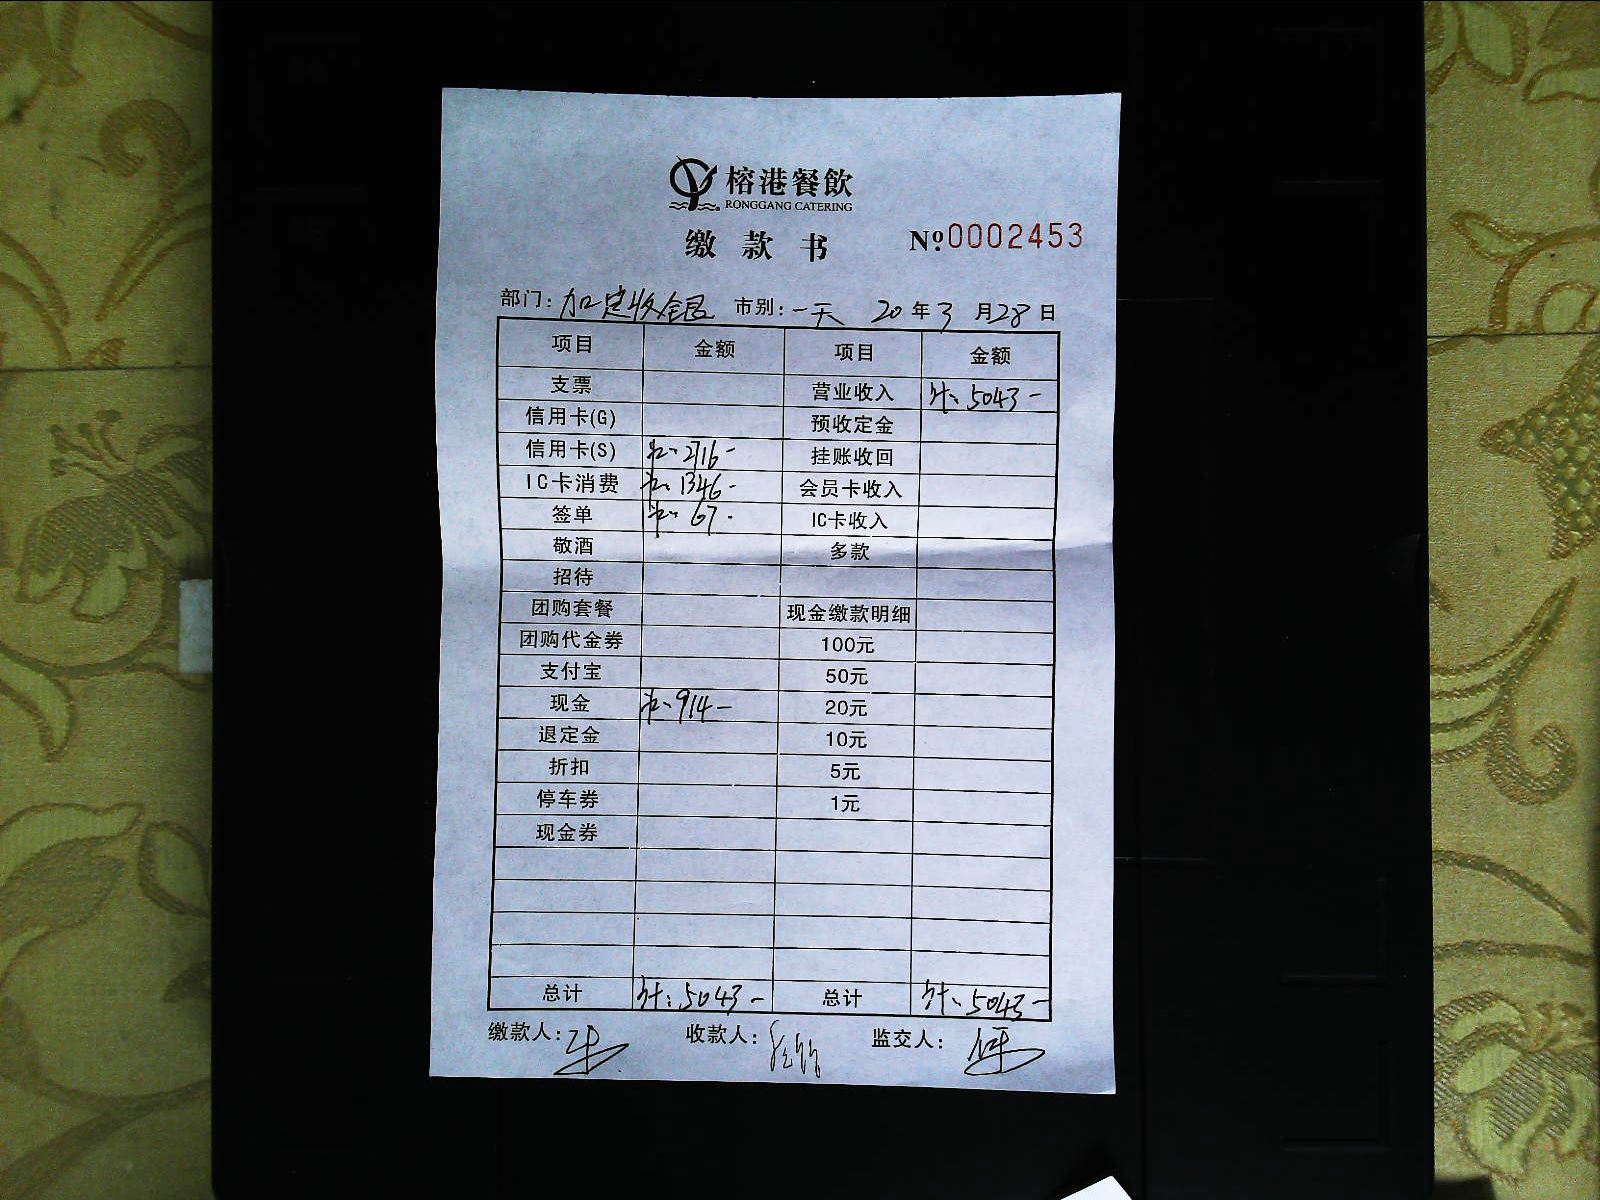 榕港餐飲
RONGGANG CATERING
缴款书 Nº 0002453
部门: 加定收银 市别: 一天 20年3月28日
项目 金额 项目 金额
支票 营业收入 计: 5043-
信用卡(G) 预收定金
信用卡(S) 2716- 挂账收回
IC卡消费 1346- 会员卡收入
签单 67- IC卡收入
敬酒 多款
招待
团购套餐 现金缴款明细
团购代金券 100元
支付宝 50元
现金 914- 20元
退定金 10元
折扣 5元
停车券 1元
现金券
总计 计: 5043- 总计 计: 5043-
缴款人: 收款人: 监交人: